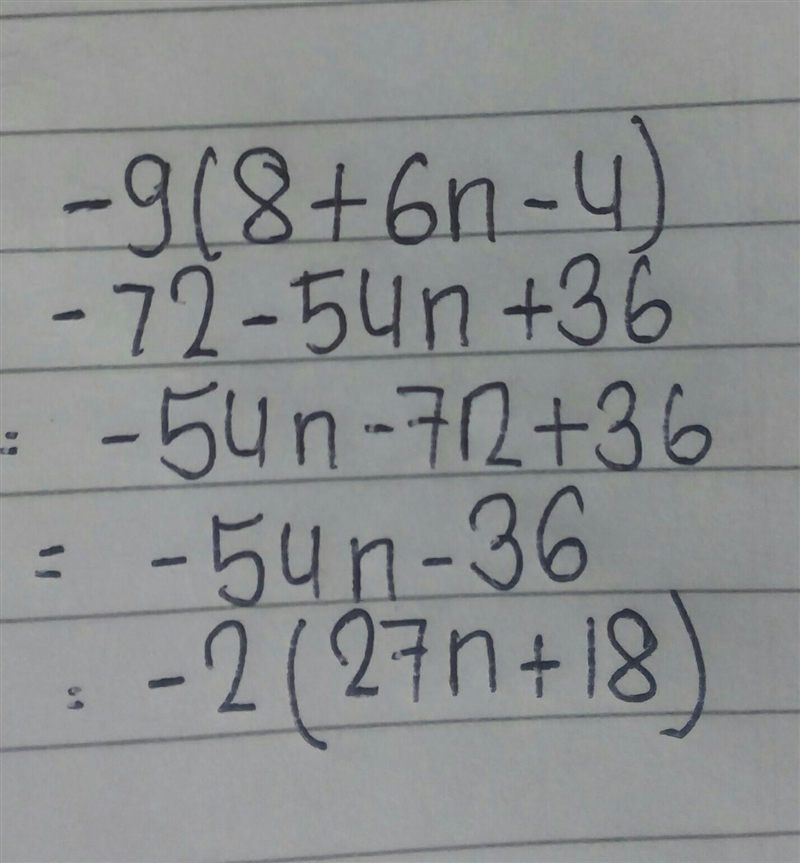 -9(8+6n-4)
-72-54n+36
= -54n-72+36
= -54n-36
= -2(27n+18)